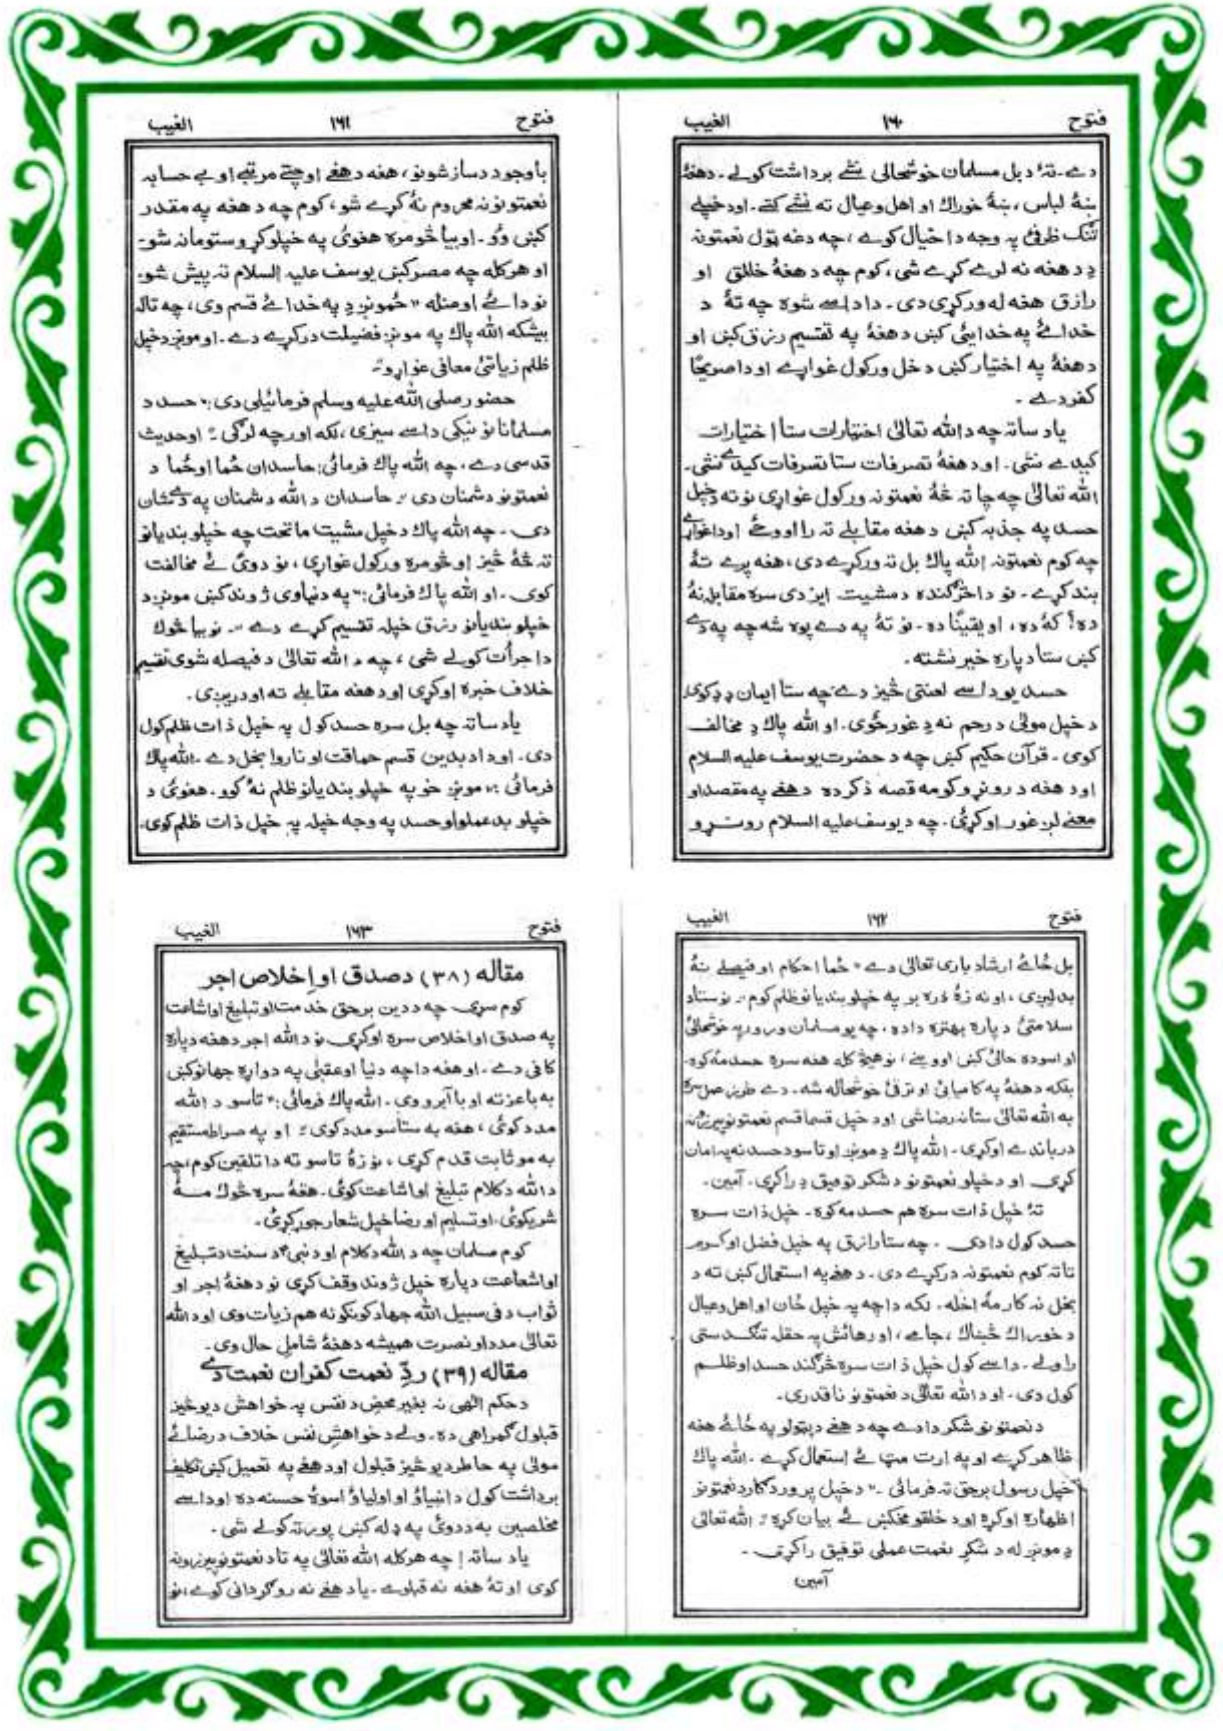 فتوح ۱۶۰ الغیب
دے۔ تۀ د بل مسلمان خوشحالی نشے برداشت کولے۔ دهغۀ
ښۀ لباس، ښۀ خوراک او اهل و عیال ته نشے کتے۔ او د خپلے
تنګ ظرفئ په وجه دا خیال کوے، چه دغه ټول نعمتونه
دِ د هغه نه لرے کړے شی، کوم چه د هغۀ خالق او
رازق هغه له ورکړی دی۔ دا داسے شوه چه تۀ د
خدائے په خدایئ کښ د هغۀ په تقسیم رزق کښ او
د هغۀ په اختیار کښ دخل ورکول غواړے او دا صریحًا
کفر دے۔
یاد ساته چه د الله تعالیٰ اختیارات ستا اختیارات
کیدے نشی۔ او د هغۀ تصرفات ستا تصرفات کیدے نشی۔
الله تعالیٰ چه چا ته څۀ نعمتونه ورکول غواړی نو ته د خپل
حسد په جذبه کښ د هغه مقابلے ته را اووځے او دا غواړے
چه کوم نعمتونه الله پاک بل ته ورکړے دی، هغه پرے تۀ
بند کړے۔ نو دا څرګنده د مشیت ایزدی سره مقابله نۀ
ده؟ کۀ ده، او یقینًا ده۔ نو تۀ په دے پوه شه چه په دے
کښ ستا د پاره خیر نشته۔
حسد یو داسے لعنتی څیز دے چه ستا ایمان دِ کوی
د خپل مولیٰ د رحم نه دِ غورځوی۔ او الله پاک دِ مخالف
کوی۔ قرآن حکیم کښ چه د حضرت یوسف علیه السلام
او د هغه د روڼو کومه قصه ذکر ده د هغے په مقصد او
معنے لږ غور اوکړئ۔ چه د یوسف علیه السلام روڼو
فتوح ۱۶۱ الغیب
باوجود د سازشونو، هغه د هغے اوچتے مرتبے او بے حسابه
نعمتونو نه محروم نۀ کړے شو، کوم چه د هغه په مقدر
کښ وُو۔ او بیا څومره هغوئ په خپلو کړو ستومانه شو۔
او هرکله چه مصر کښ یوسف علیه السلام ته پیش شو۔
نو دائے اومنله "څمونږ دِ په خدائے قسم وی، چه تاله
بیشکه الله پاک په مونږ فضیلت درکړے دے۔ او مونږ د خپل
ظلم زیاتئ معافی غواړو"۔
حضور صلی الله علیه وسلم فرمائیلی دی:" حسد د
مسلمانانو نیکی داسے سیزی، لکه اور چه لرګی"۔ او حدیث
قدسی دے، چه الله پاک فرمائی: حاسدان ځما او ځما د
نعمتونو دشمنان دی"۔ حاسدان د الله دشمنان په دے شان
دی۔ چه الله پاک د خپل مشیت ماتحت چه خپلو بندیانو
ته څۀ څیز او څومره ورکول غواړی، نو دوئ ئے مخالفت
کوی۔ او الله پاک فرمائی:" په دنیاوی ژوند کښ مونږ د
خپلو بندیانو رزق خپله تقسیم کړے دے"۔ نو بیا څوک
دا جرأت کولے شی، چه د الله تعالیٰ د فیصله شوی تقسیم
خلاف خبره اوکړی او د هغه مقابلے ته اودریږی۔
یاد ساته چه بل سره حسد کول په خپل ذات ظلم کول
دی۔ او دا د بدین قسم حماقت او ناروا بخل دے۔ الله پاک
فرمائی:" مونږ خو په خپلو بندیانو ظلم نۀ کوو۔ هغوئ د
خپلو بد عملو او حسد په وجه خپله په خپل ذات ظلم کوی۔
فتوح ۱۶۲ الغیب
بل ځائے ارشاد باری تعالیٰ دے "ځما احکام او فیصلے نۀ
بدلیږی، او نه زۀ ذره بر په خپلو بندیانو ظلم کوم"۔ نو ستاد
سلامتئ د پاره بهتره داده، چه یو مسلمان ورور په خوشحالئ
او اسوده حالئ کښ اووینے، نو هیڅ کله هغه سره حسد مه کوه۔
بلکه د هغۀ په کامیابئ او ترقئ خوشحاله شه۔ دے طرز عمل سره
به الله تعالیٰ ستا نه رضا شی او د خپل قسما قسم نعمتونو پیرزونه
درباندے اوکړی۔ الله پاک دِ مونږ او تاسو د حسد نه په امان
کړی او د خپلو نعمتونو د شکر توفیق دِ راکړی۔ آمین۔
تۀ خپل ذات سره هم حسد مه کوه۔ خپل ذات سره
حسد کول دا دی۔ چه ستا رازق په خپل فضل او کرم
تا ته کوم نعمتونه درکړے دی۔ د هغے په استعمال کښ ته د
بخل نه کار مۀ اخله۔ لکه داچه په خپل ځان او اهل و عیال
د خوراک څښاک، جامے، او رهائش په حقله تنګدستی
راولے۔ داسے کول خپل ذات سره څرګند حسد او ظلم
کول دی۔ او د الله تعالیٰ د نعمتونو ناقدری۔
د نعمتونو شکر دا دے چه د هغے د پټولو په ځائے هغه
ظاهر کړے او په ارت مټ ئے استعمال کړے۔ الله پاک
خپل رسول برحق ته فرمائی۔" د خپل پروردګار د نعمتونو
اظهاره اوکړه او د خلقو مخکښ ئے بیان کړه"۔ الله تعالیٰ
دِ مونږ له د شکرِ نعمت عملی توفیق راکړی۔
آمین
فتوح ۱۶۳ الغیب
مقاله (۳۸) د صدق او اِخلاص اجر
کوم سړی چه د دین برحق خدمت او تبلیغ او اشاعت
په صدق او اخلاص سره اوکړی نو د الله اجر د هغه دپاره
کافی دے۔ او هغه داچه دنیا او عقبیٰ په دواړه جهانو کښ
به باعزته او با آبرو وی۔ الله پاک فرمائی:" تاسو د الله
مدد کوئ، هغه به ستاسو مدد کوی"۔ او په صراط مستقیم
به مو ثابت قدم کړی، نو زۀ تاسو ته دا تلقین کوم، چه
د الله د کلام تبلیغ او اشاعت کوئ۔ هغۀ سره څوک مۀ
شریکوئ۔ او تسلیم او رضا خپل شعار جوړ کړئ۔
کوم مسلمان چه د الله د کلام او د نبیؐ د سنت د تبلیغ
او اشاعت دپاره خپل ژوند وقف کړی نو د هغۀ اجر او
ثواب د فی سبیل الله جهاد کونکو نه هم زیات وی او د الله
تعالیٰ مدد او نصرت همیشه د هغۀ شاملِ حال وی۔
مقاله (۳۹) ردِّ نعمت کفران نعمت دے
د حکم الٰهی نه بغیر محض د نفس په خواهش د یو څیز
قبلول ګمراهی ده۔ ولے د خواهشِ نفس خلاف د رضائے
مولیٰ په خاطر د یو څیز قبلول او د هغے په تعمیل کښ تکلیف
برداشت کول د انبیاؤ او اولیاؤ اسوۂ حسنه ده او داسے
مخلصین به د دوئ په ډله کښ پورته کولے شی۔
یاد ساته! چه هرکله الله تعالیٰ په تا د نعمتونو پیرزونه
کوی او تۀ هغه نه قبلوے۔ یا د هغے نه روګردانی کوے، نو